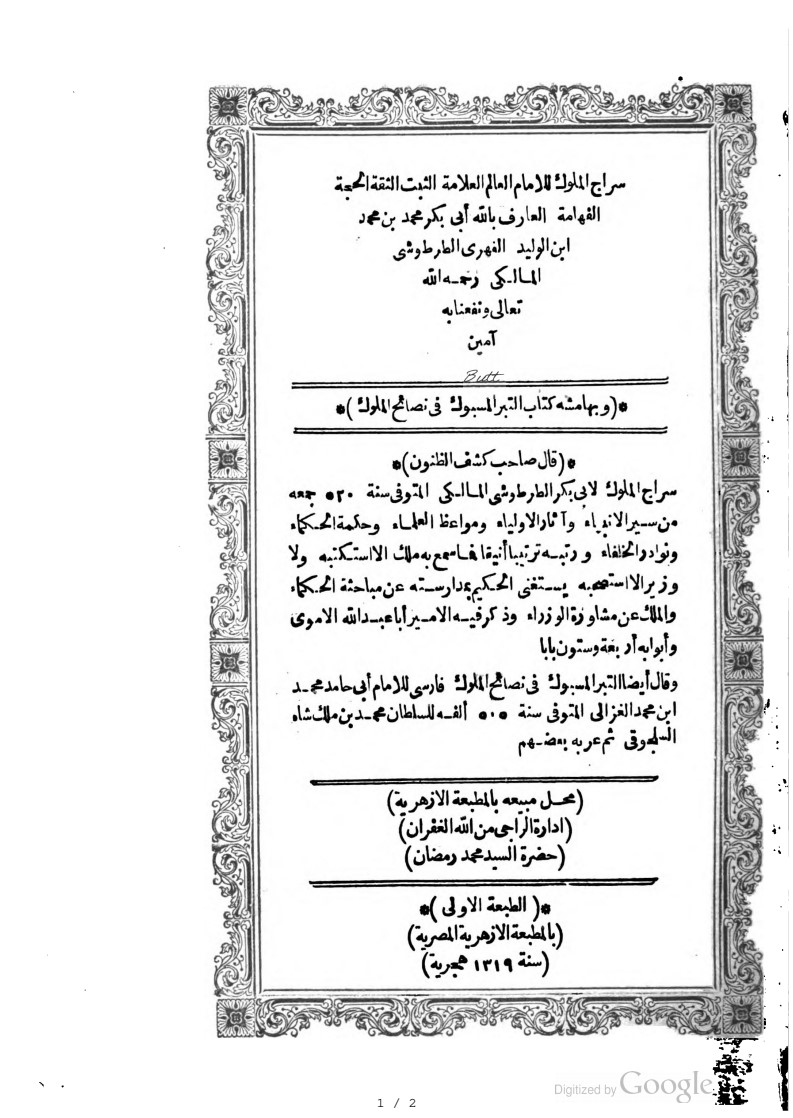 سراج الملوك للامام العالم العلامة الثبت الثقة الحجة
الفهامة العارف بالله أبى بكر محمد بن محمد
ابن الوليد الفهرى الطرطوشى
المالكى رحمه الله
تعالى ونفعنا به
آمين
Butt
*(وبهامشه كتاب التبر المسبوك فى نصائح الملوك)*
*(قال صاحب كشف الظنون)*
سراج الملوك لابى بكر الطرطوشى المالكى المتوفى سنة ٥٢٠ جمعه
من سير الانبياء وآثار الاولياء ومواعظ العلماء وحكمة الحكماء
ونوادر الخلفاء ورتبه ترتيبا أنيقا فما سمع به ملك الا استكتبه ولا
وزير الا استصحبه يستغنى الحكيم بمدارسته عن مباحثة الحكماء
والملك عن مشاورة الوزراء وذكر فيه الامير أبا عبد الله الاموى
وأبوابه أربعة وستون بابا
وقال أيضا التبر المسبوك فى نصائح الملوك فارسى للامام أبى حامد محمد
ابن محمد الغزالى المتوفى سنة ٥٠٥ ألفه للسلطان محمد بن ملك شاه
السلجوقى ثم عربه بعضهم
(محل مبيعه بالمطبعة الازهرية)
(ادارة الراجى من الله الغفران)
(حضرة السيد محمد رمضان)
*(الطبعة الاولى)*
(بالمطبعة الازهرية المصرية)
(سنة ١٣١٩ هجرية)
Digitized by Google
1 / 2